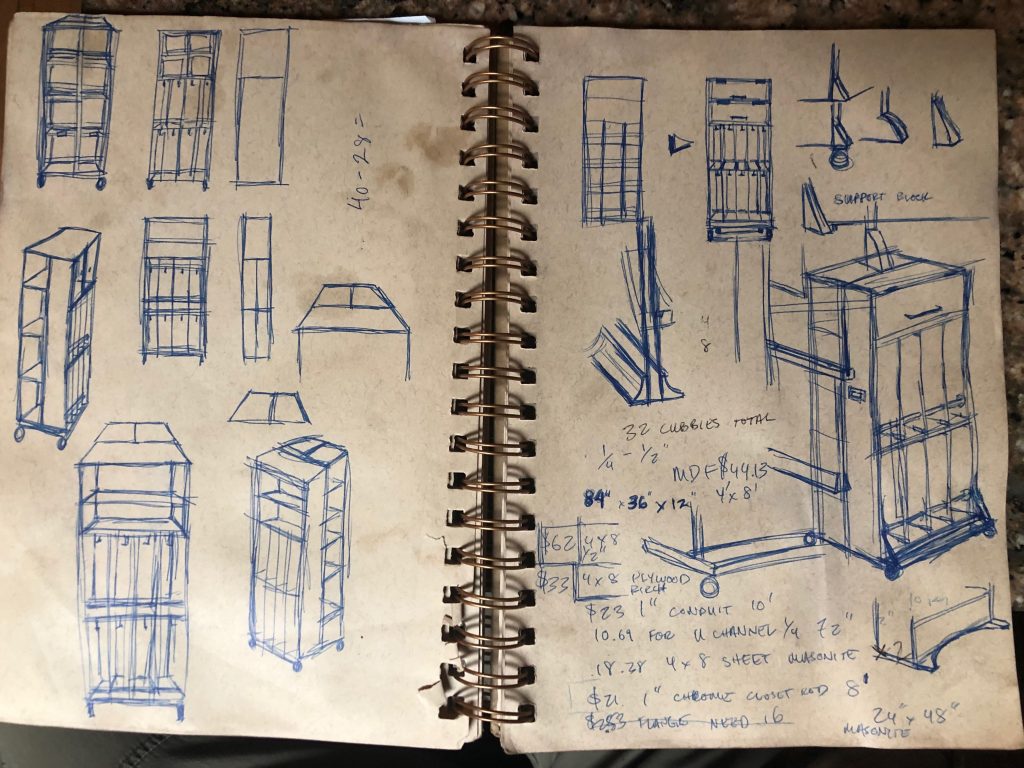 40 - 28 =
SUPPORT BLOCK
4
8
32 CUBBIES TOTAL
1/4 - 1/2"
MDF $44.13
4' x 8'
84" x 36" x 12"
$62 4 x 8
1/2"
$33 4 x 8 PLYWOOD
BIRCH
$23 1" CONDUIT 10'
10.69 FOR U CHANNEL 1/4 72"
18.28 4 x 8 SHEET MASONITE x 2
$21 1" CHROME CLOSET ROD 8'
FLANGE NEED 16
24" x 48"
MASONITE